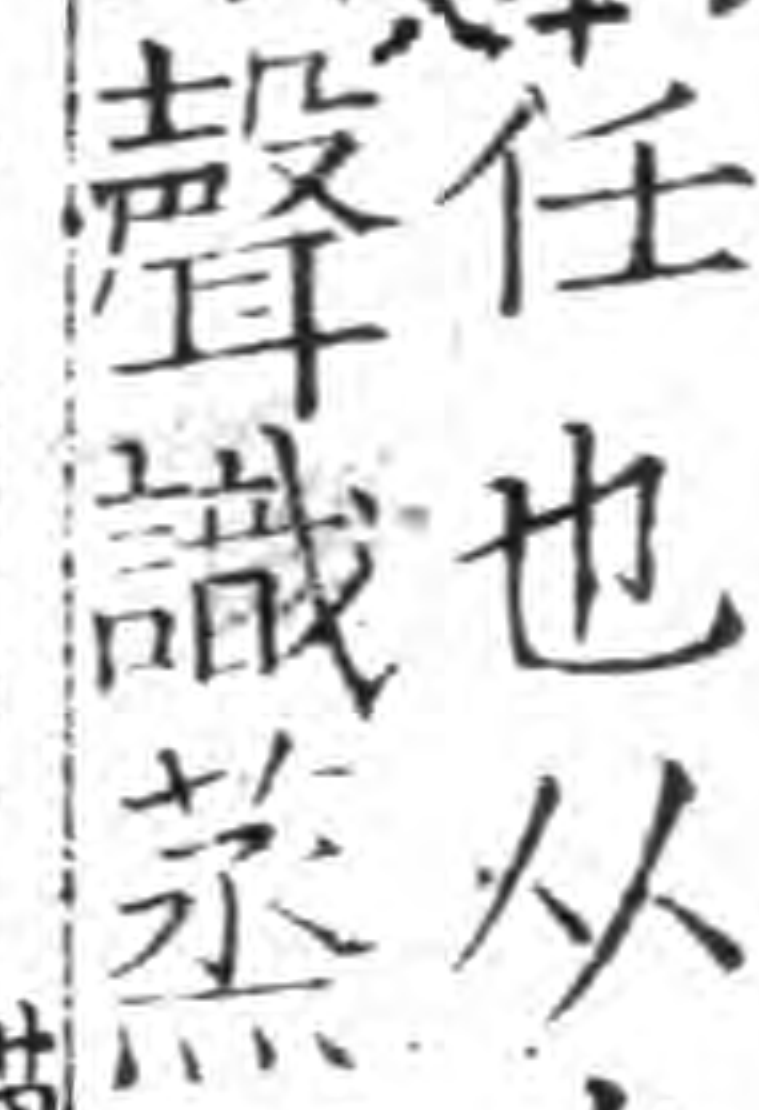 任也从
聲識蒸